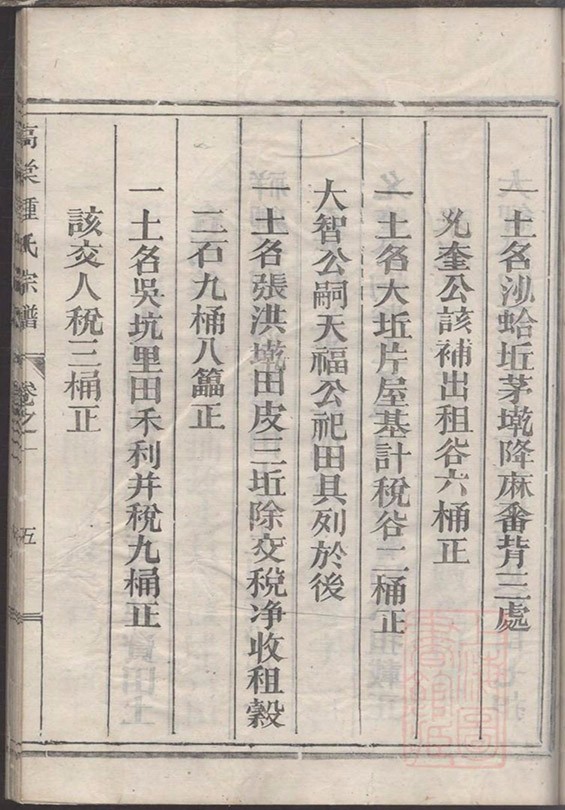 一土名沙蛤坵茅墘降麻畬背三處
兊奎公該補出租谷六桶正
一土名大坵片屋基計稅谷二桶正
大智公嗣天福公祀田具列於後
一土名張洪墘田皮三坵除交稅净收租穀
二石九桶八籮正
一土名吳坑里田禾利并稅九桶正
該交人稅三桶正
高棠鍾氏宗譜 卷之一 五